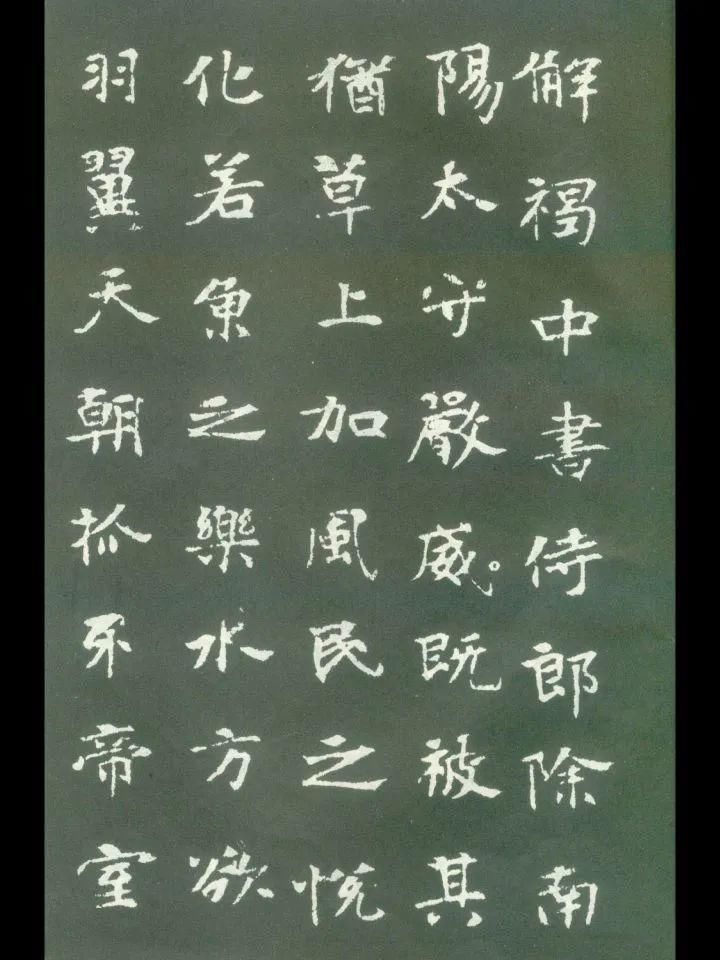 解褐中書侍郎除南
陽太守嚴威。既被其
猶草上加風民之悅
化若魚之樂水方欲
羽翼天朝抓牙帝室